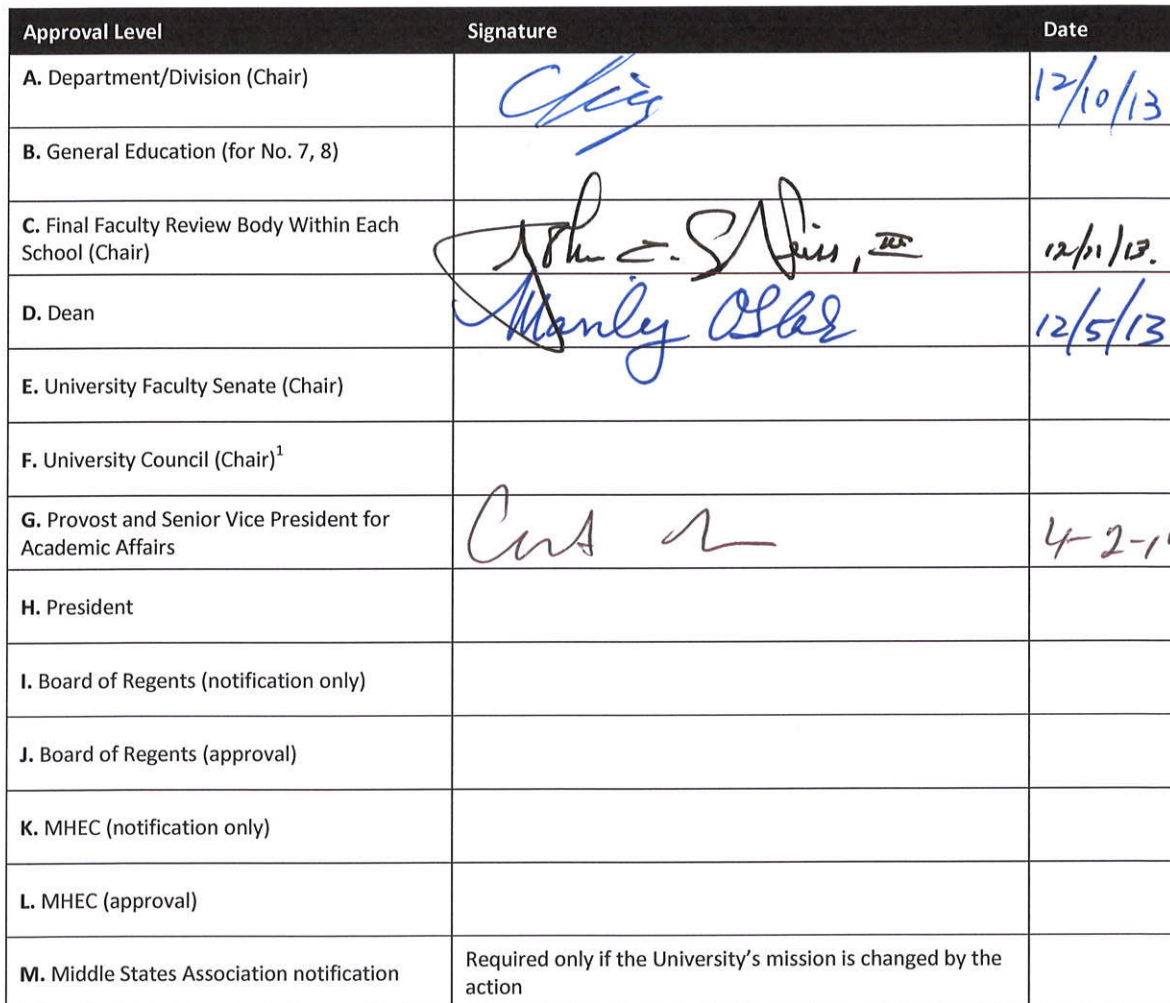 Approval Level Signature Date
A. Department/Division (Chair) 12/10/13
B. General Education (for No. 7, 8)
C. Final Faculty Review Body Within Each
School (Chair) John C. 12/11/13.
D. Dean 12/5/13
E. University Faculty Senate (Chair)
F. University Council (Chair)¹
G. Provost and Senior Vice President for
Academic Affairs 4-2-1
H. President
I. Board of Regents (notification only)
J. Board of Regents (approval)
K. MHEC (notification only)
L. MHEC (approval)
M. Middle States Association notification Required only if the University's mission is changed by the
action